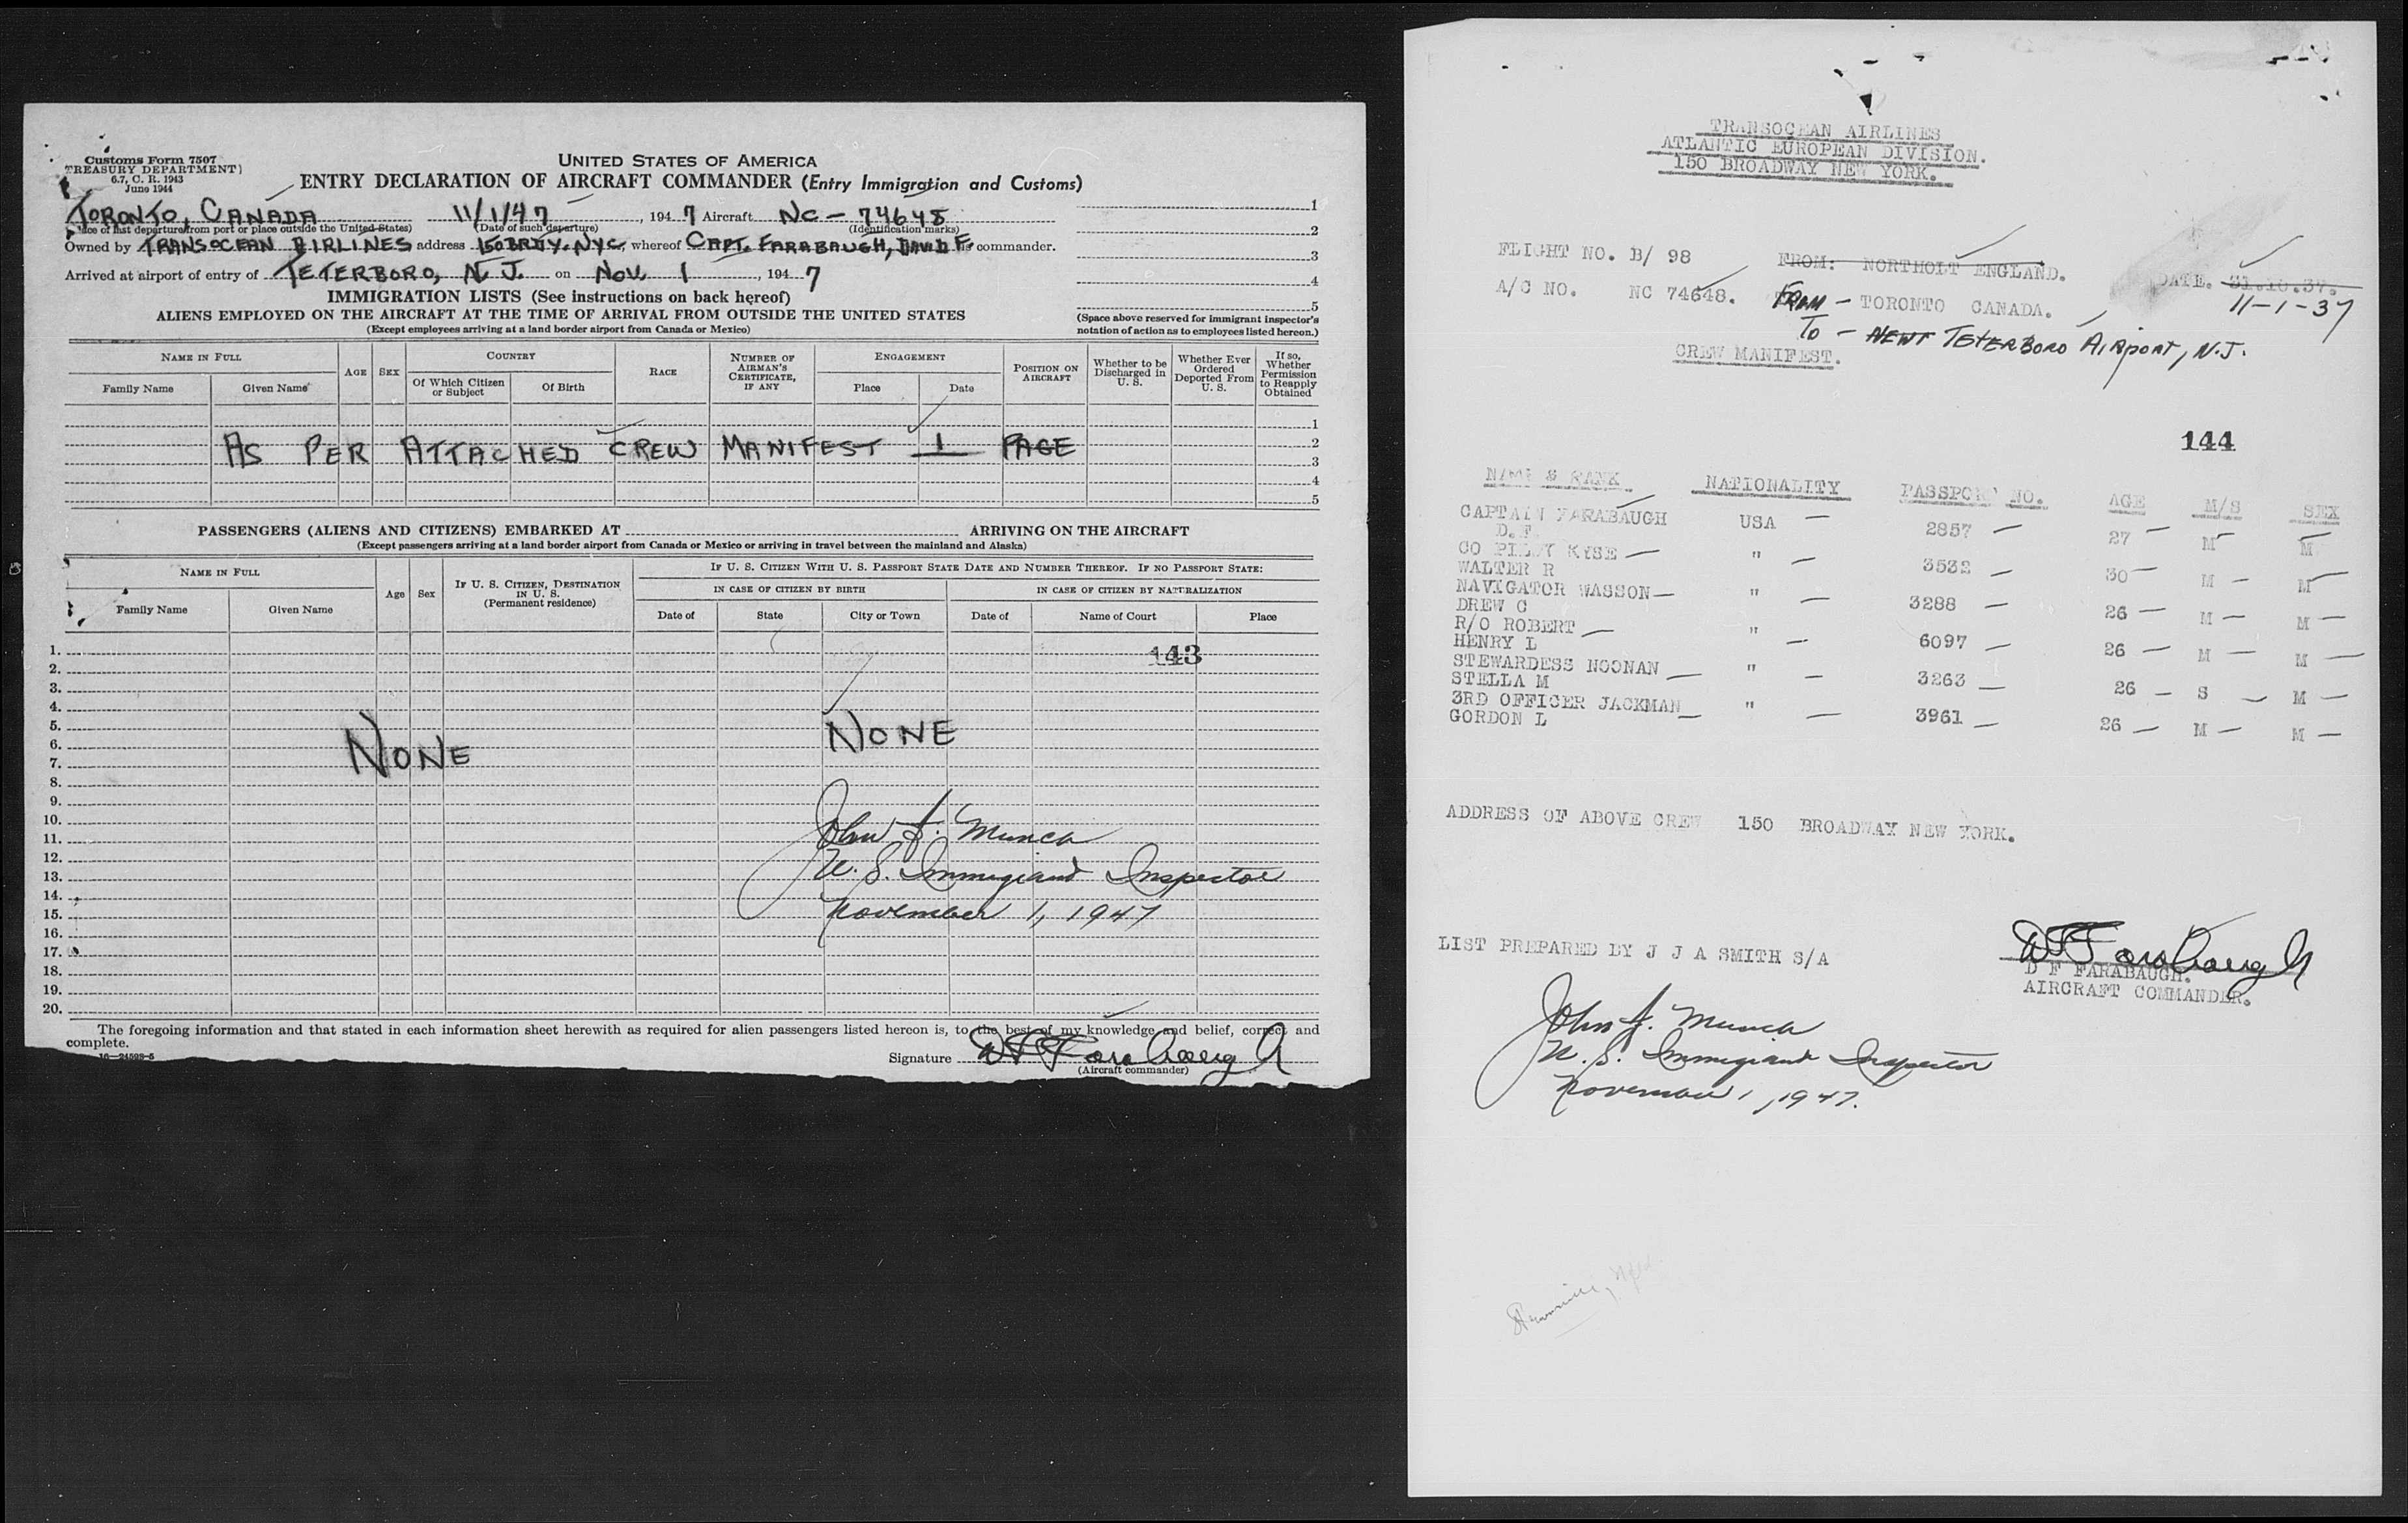 Customs Form 7507
TREASURY DEPARTMENT)
6.7, C. R. 1943
June 1944
UNITED STATES OF AMERICA
ENTRY DECLARATION OF AIRCRAFT COMMANDER (Entry Immigration and Customs)
TORONTO, CANADA 11/1/47, 194 7 Aircraft NC - 74648
(Place of last departure from port or place outside the United States) (Date of such departure) (Identification marks)
Owned by TRANSOCEAN AIRLINES address 150 BRDY. NYC, whereof CAPT. FARABAUGH, DAVID F. is commander.
Arrived at airport of entry of TETERBORO, N. J. on Nov. 1, 194 7
1
2
3
4
5
(Space above reserved for immigrant inspector's
notation of action as to employees listed hereon.)
IMMIGRATION LISTS (See instructions on back hereof)
ALIENS EMPLOYED ON THE AIRCRAFT AT THE TIME OF ARRIVAL FROM OUTSIDE THE UNITED STATES
(Except employees arriving at a land border airport from Canada or Mexico)
NAME IN FULL
Family Name Given Name
AGE SEX
COUNTRY
Of Which Citizen or Subject Of Birth
RACE
NUMBER OF AIRMAN'S CERTIFICATE, IF ANY
ENGAGEMENT
Place Date
POSITION ON AIRCRAFT
Whether to be Discharged in U. S.
Whether Ever Ordered Deported From U. S.
If so, Whether Permission to Reapply Obtained
1
2
3
4
5
AS PER ATTACHED CREW MANIFEST 1 PAGE
PASSENGERS (ALIENS AND CITIZENS) EMBARKED AT ARRIVING ON THE AIRCRAFT
(Except passengers arriving at a land border airport from Canada or Mexico or arriving in travel between the mainland and Alaska)
NAME IN FULL
Family Name Given Name
Age Sex
IF U. S. CITIZEN, DESTINATION IN U. S. (Permanent residence)
IF U. S. CITIZEN WITH U. S. PASSPORT STATE DATE AND NUMBER THEREOF. IF NO PASSPORT STATE:
IN CASE OF CITIZEN BY BIRTH IN CASE OF CITIZEN BY NATURALIZATION
Date of State City or Town Date of Name of Court Place
1.
143
2.
3.
4.
5.
6.
NONE NONE
7.
8.
9.
10.
11.
John J. Munch
12.
13.
U. S. Immigrant Inspector
14.
15.
November 1, 1947
16.
17.
18.
19.
20.
The foregoing information and that stated in each information sheet herewith as required for alien passengers listed hereon is, to the best of my knowledge and belief, correct and
complete.
16—24598-5
Signature D F Farabaugh
(Aircraft commander)
TRANSOCEAN AIRLINES
ATLANTIC EUROPEAN DIVISION.
150 BROADWAY NEW YORK.
FLIGHT NO. B/ 98 FROM: NORTHOLT ENGLAND. DATE. 31.10.37.
A/C NO. NC 74648. FROM - TORONTO CANADA. 11-1-37
TO - NEWT TETERBORO AIRPORT, N.J.
CREW MANIFEST.
144
NAME & RANK NATIONALITY PASSPORT NO. AGE M/S SEX
CAPTAIN FARABAUGH USA 2857 27 M M
D. F
CO PILOT KYSE " 3532 30 M M
WALTER R
NAVIGATOR WASSON " 3288 26 M M
DREW C
R/O ROBERT " 6097 26 M M
HENRY L
STEWARDESS NOONAN " 3263 26 S M
STELLA M
3RD OFFICER JACKMAN " 3961 26 M M
GORDON L
ADDRESS OF ABOVE CREW 150 BROADWAY NEW YORK.
LIST PREPARED BY J J A SMITH S/A
D F Farabaugh
D F FARABAUGH.
AIRCRAFT COMMANDER.
John J. Munch
U. S. Immigrant Inspector
November 1, 1947.